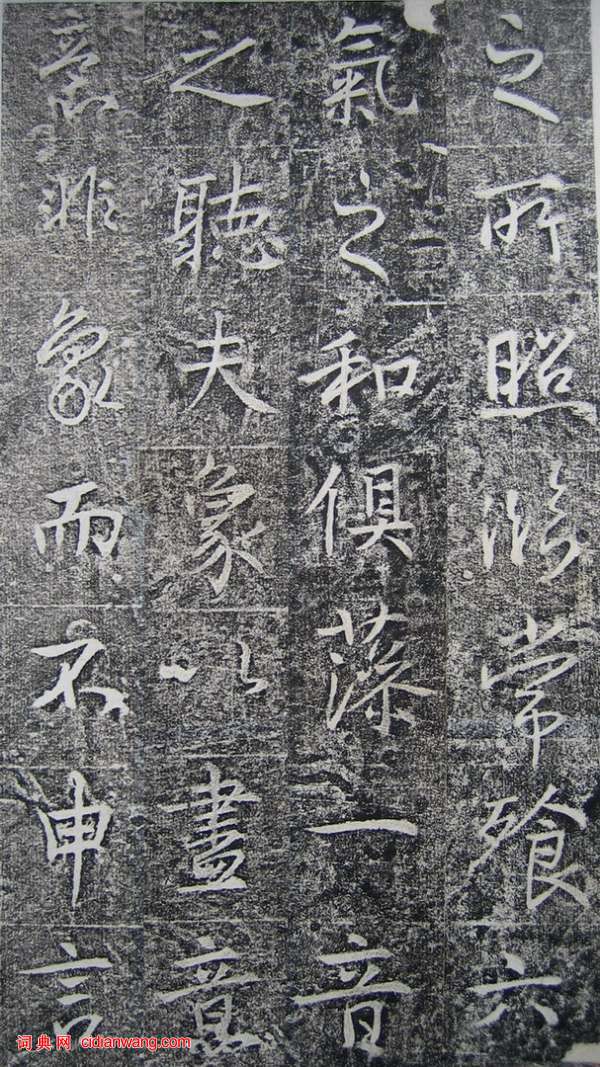 之所照臨常飱六
氣之和俱藻一音
之聽夫象以盡意
意非象而不申言
词典网 cidianwang.com